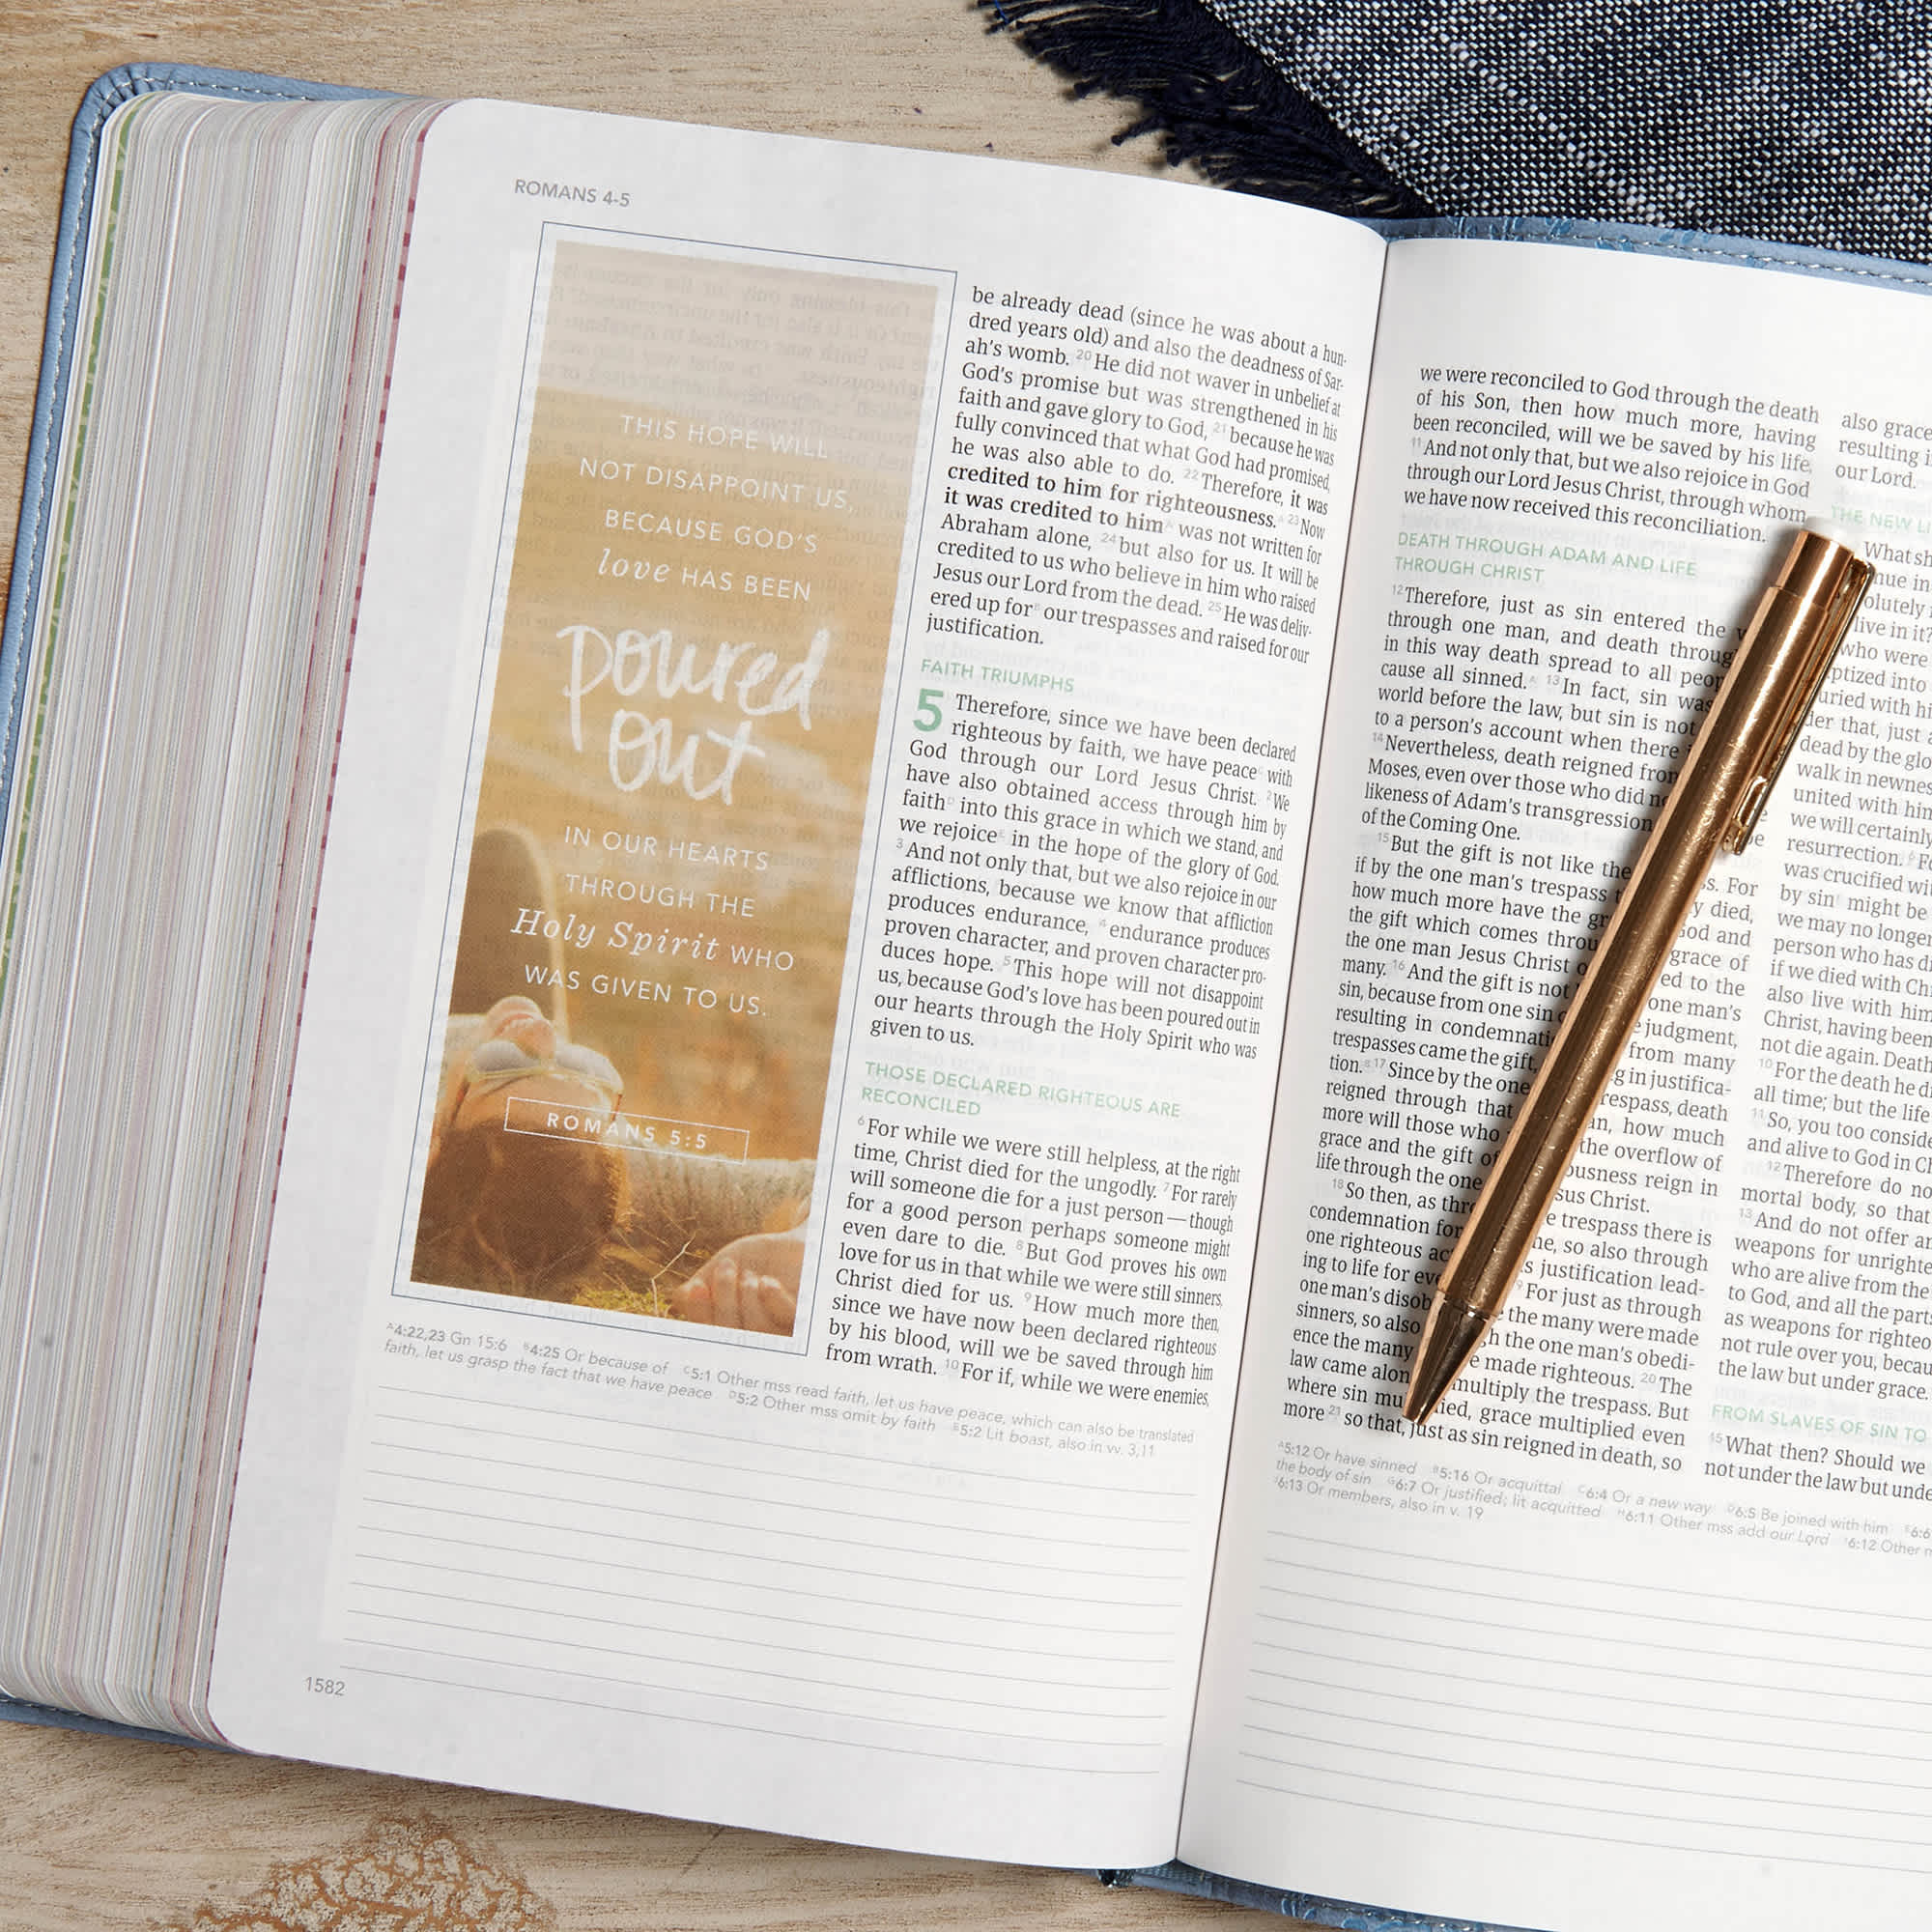 ROMANS 4-5
THIS HOPE WILL
NOT DISAPPOINT US,
BECAUSE GOD'S
love HAS BEEN
poured
out
IN OUR HEARTS
THROUGH THE
Holy Spirit WHO
WAS GIVEN TO US.
ROMANS 5:5
be already dead (since he was about a hun-
dred years old) and also the deadness of Sar-
ah's womb. 20 He did not waver in unbelief at
God's promise but was strengthened in his
faith and gave glory to God, 21 because he was
fully convinced that what God had promised,
he was also able to do. 22 Therefore, it was
credited to him for righteousness.A 23 Now
it was credited to himA was not written for
Abraham alone, 24 but also for us. It will be
credited to us who believe in him who raised
Jesus our Lord from the dead. 25 He was deliv-
ered up forB our trespasses and raised for our
justification.
FAITH TRIUMPHS
5 Therefore, since we have been declared
righteous by faith, we have peaceC with
God through our Lord Jesus Christ. 2 We
have also obtained access through him by
faithD into this grace in which we stand, and
we rejoiceE in the hope of the glory of God.
3 And not only that, but we also rejoice in our
afflictions, because we know that affliction
produces endurance, 4 endurance produces
proven character, and proven character pro-
duces hope. 5 This hope will not disappoint
us, because God's love has been poured out in
our hearts through the Holy Spirit who was
given to us.
THOSE DECLARED RIGHTEOUS ARE
RECONCILED
6 For while we were still helpless, at the right
time, Christ died for the ungodly. 7 For rarely
will someone die for a just person — though
for a good person perhaps someone might
even dare to die. 8 But God proves his own
love for us in that while we were still sinners,
Christ died for us. 9 How much more then,
since we have now been declared righteous
by his blood, will we be saved through him
from wrath. 10 For if, while we were enemies,
A4:22,23 Gn 15:6 B4:25 Or because of C5:1 Other mss read faith, let us have peace, which can also be translated
faith, let us grasp the fact that we have peace D5:2 Other mss omit by faith E5:2 Lit boast, also in vv. 3,11
1582
we were reconciled to God through the death
of his Son, then how much more, having
been reconciled, will we be saved by his life.
11 And not only that, but we also rejoice in God
through our Lord Jesus Christ, through whom
we have now received this reconciliation.
DEATH THROUGH ADAM AND LIFE
THROUGH CHRIST
12 Therefore, just as sin entered the
through one man, and death through
in this way death spread to all
cause all sinned.A 13 In fact, sin was
world before the law, but sin is not
to a person's account when there
14 Nevertheless, death reigned from
Moses, even over those who did
likeness of Adam's transgression
of the Coming One.
15 But the gift is not like the
if by the one man's trespass
s. For
how much more have the
y died,
the gift which comes
God and
the one man Jesus Christ
grace of
many. 16 And the gift is not
ed to the
sin, because from one sin
one man's
resulting in
judgment,
trespasses came the gift,
from many
tion.B 17 Since by the one
g in justifica-
reigned through that
respass, death
more will those who
an, how much
grace and the gift of
the overflow of
life through the one
ousness reign in
sus Christ.
18 So then, as
trespass there is
condemnation for
ne, so also through
one righteous
s justification lead-
ing to life for
19 For just as through
one man's
the many were made
sinners, so also
h the one man's obedi-
ence the many
e made righteous. 20 The
law came
multiply the trespass. But
where sin
ied, grace multiplied even
more 21 so that, just as sin reigned in death, so
A5:12 Or have sinned B5:16 Or acquittal C6:4 Or a new way D6:5 Be joined with him
the body of sin G6:7 Or justified; lit acquitted H6:11 Other mss add our Lord I6:12 Other
J6:13 Or members, also in v. 19
also grace
resulting
our Lord.
THE NEW
What
nue in
olutely
live in it?
who were
ptized into
uried with
der that, just
dead by the
walk in
united with him
we will certainly
resurrection.
was crucified
by sin might be
we may no longer
person who has
if we died with
also live with him
Christ, having been
not die again. Death
10 For the death he
all time; but the life
11 So, you too
and alive to God in
12 Therefore do
mortal body, so that
13 And do not offer
weapons for
who are alive from the
to God, and all the
as weapons for
not rule over you,
the law but under grace.
FROM SLAVES OF SIN TO
15 What then? Should we
not under the law but